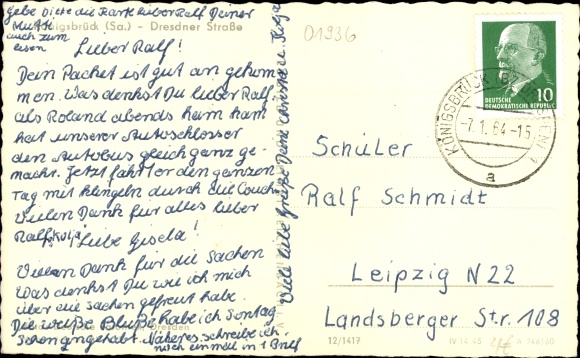 gebe bitte die Karte lieber Ralf Deiner
Mutti
auch zum
lesen
Königsbrück (Sa.) – Dresdner Straße
Lieber Ralf!
Dein Packet ist gut an gekom
men. Was denkst Du lieber Ralf
als Roland abends kam ham
hat unserer Autoschlosser
den Autobus gleich ganz ge-
macht. Jetzt fährt er den ganzen
Tag mit klingeln durch die Couch
Vielen Dank für alles lieber
Ralf
Liebe Gisela!
Vielen Dank für die Sachen
Was denkst Du wie ich mich
über die Sachen gefreut habe.
Die weiße Bluße habe ich Sontag
schon angehabt. Näheres schreibe ich
noch einmal in 1 Brief
Viele liebe Grüße Deine Christine u.
01936
DEUTSCHE
DEMOKRATISCHE REPUBLIK
10
KÖNIGSBRÜCK (BZ DRESDEN)
-7.1.64-15
a
Schüler
Ralf Schmidt
Leipzig N22
Landsberger Str. 108
Dresden
12/1417